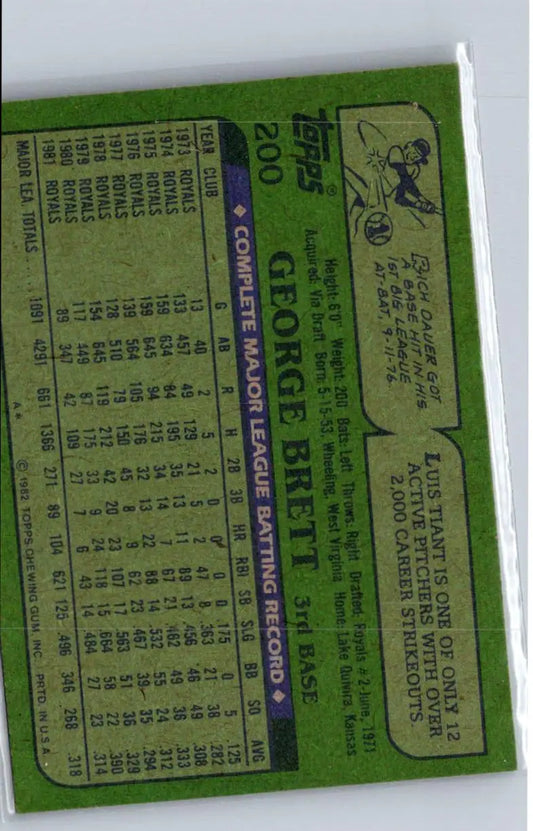 RICH DAUER GOT
A BASE HIT IN HIS
1ST BIG LEAGUE
AT-BAT, 9-11-76.
LUIS TIANT IS ONE OF ONLY 12
ACTIVE PITCHERS WITH OVER
2,000 CAREER STRIKEOUTS.
TOPPS®
200
Height: 6'0" Weight: 200 Bats: Left Throws: Right Drafted: Royals #2-June, 1971
Acquired: Via Draft Born: 5-15-53, Wheeling, West Virginia Home: Lake Quivira, Kansas
GEORGE BRETT 3rd BASE
◆ COMPLETE MAJOR LEAGUE BATTING RECORD ◆
YEAR CLUB G AB R H 2B 3B HR RBI SB SLG BB SO AVG
1973 ROYALS 13 40 2 5 2 0 0 0 0 .175 0 5 .125
1974 ROYALS 133 457 49 129 21 5 2 47 8 .363 21 38 .282
1975 ROYALS 159 634 84 195 35 13 11 89 13 .456 46 49 .308
1976 ROYALS 159 645 94 215 34 14 7 67 21 .462 49 36 .333
1977 ROYALS 139 564 105 176 32 13 22 88 14 .532 55 24 .312
1978 ROYALS 128 510 79 150 45 8 9 62 23 .467 39 35 .294
1979 ROYALS 154 645 119 212 42 20 23 107 17 .563 51 36 .329
1980 ROYALS 117 449 87 175 33 9 24 118 15 .664 58 22 .390
1981 ROYALS 89 347 42 109 27 7 6 43 14 .484 27 23 .314
MAJOR LEA. TOTALS.... 1091 4291 661 1366 271 89 104 621 125 .496 346 268 .318
A* © 1982 TOPPS CHEWING GUM, INC. PRTD. IN U.S.A.